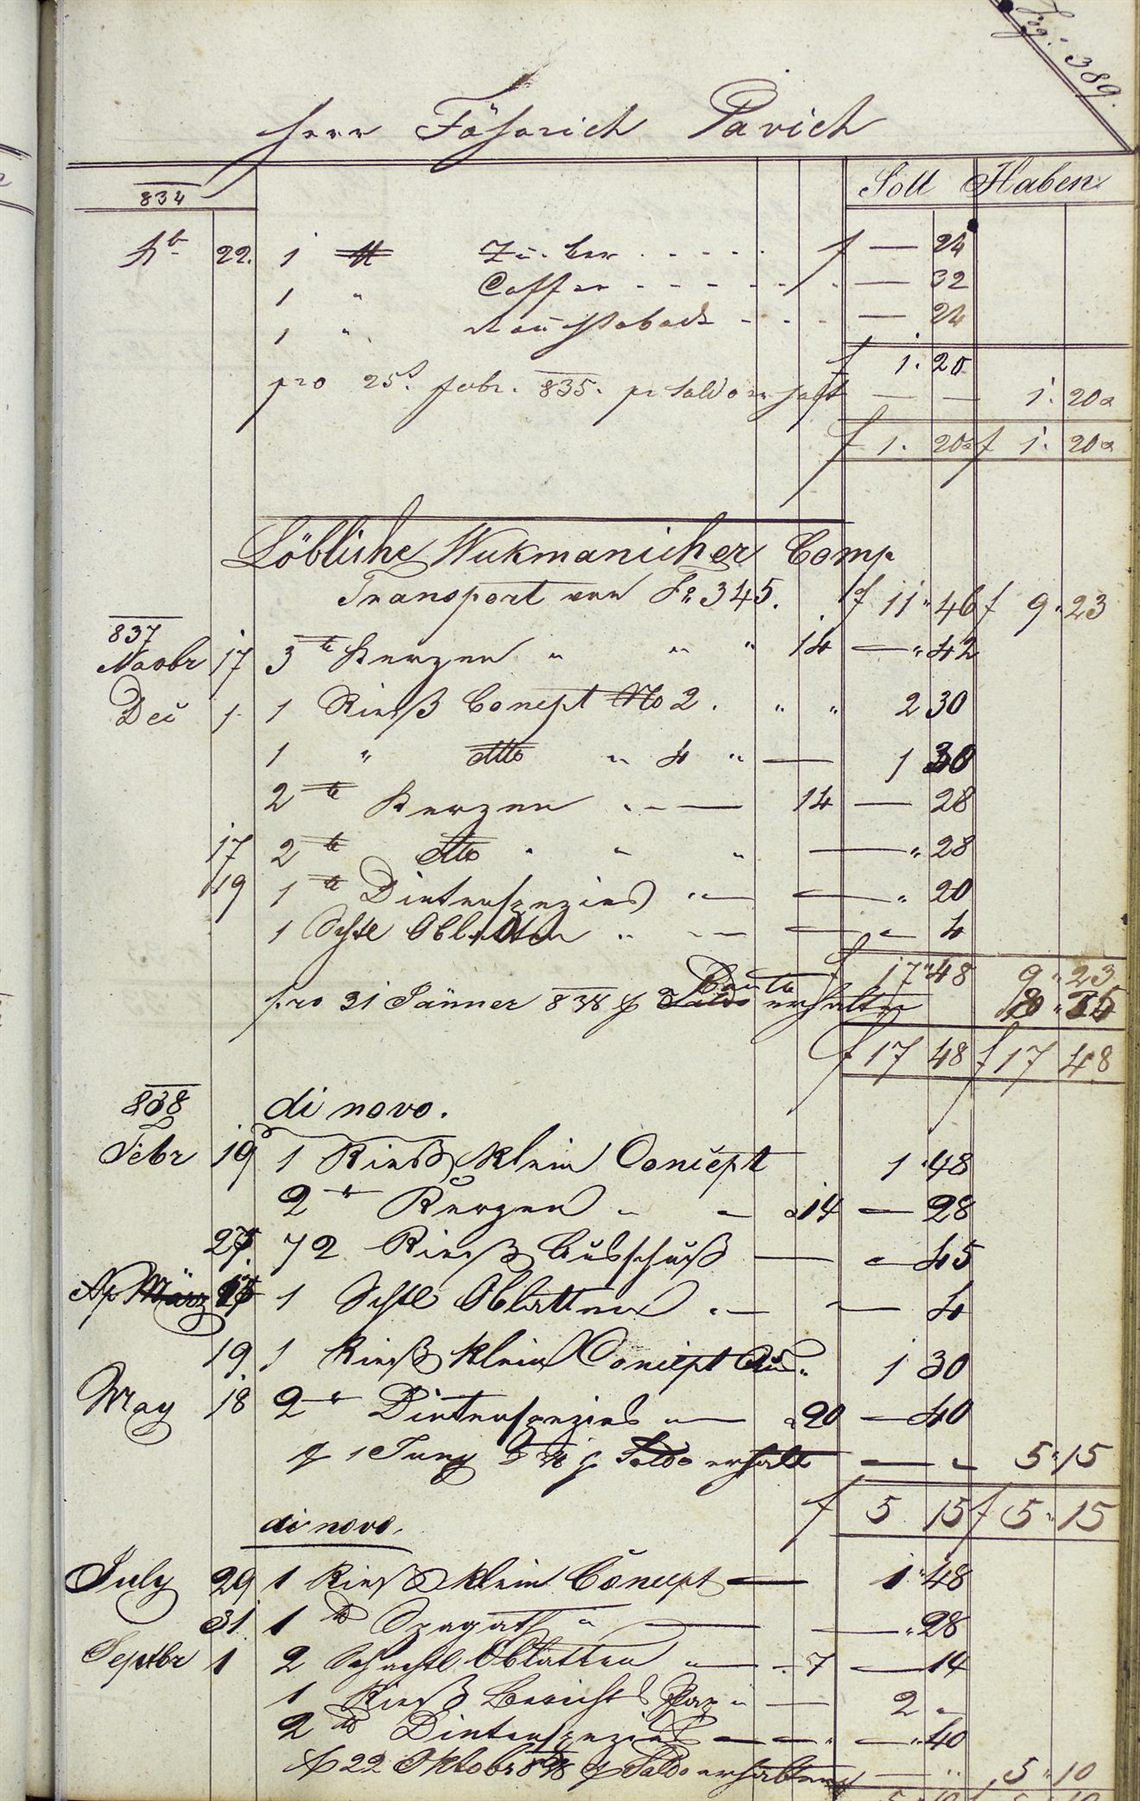 Pag: 389.
Herr Fähnrich Pavich
834 Soll Haben
22. 1 ℔ Zucker f — 24
1 " Caffee — 32
1 " Rauchtaback — 24
f 1. 20
pro 25t. Febr. 835. pr Saldo erhalt — — 1. 20
f 1. 20 f 1. 20
Löbliche Wukmanicher Comp
Transport von Fo 345. f 11 " 46 f 9 " 23
837
Novbr 17 3 ℔ Kerzen " " " 14 — " 42
Dec 1 1 Rieß Concept No 2. " " 2 30
1 " dtto " 4 " — 1 30
2 ℔ Kerzen — 14 — 28
17 2 ℔ dtto " " " — " 28
19 1 ℔ Dintenspezies " — — " 20
1 Schtl Oblatten " — — " 4
f 17 " 48 9 " 23
pro 31 Jänner 838 p erhalten 8 " 25
f 17 48 f 17 48
838 di novo.
Febr 19 1 Rieß klein Concept 1 " 48
2 ℔ Kerzen " — a 14 — 28
27 1/2 Rieß — " 45
Ap 1 Schtl Oblatten — — 4
19. 1 Rieß klein Concept 1 30
May 18 2 ℔ Dintenspezies — a 20 — 40
p 1 Juny 838 p Saldo erhalt — " 5 " 15
f 5 15 f 5 " 15
di novo.
July 29 1 Rieß klein Concept — 1 " 48
31 1 ℔ Spagath " — — " 28
Septbr 1 2 Schachtl Oblatten " — " 7 — 14
1 Rieß Berichts Pap " — 2 "
2 ℔ Dintenspezies — — " — " 40
p 22 Oktobr 838 p Saldo erhalten — " 5 " 10